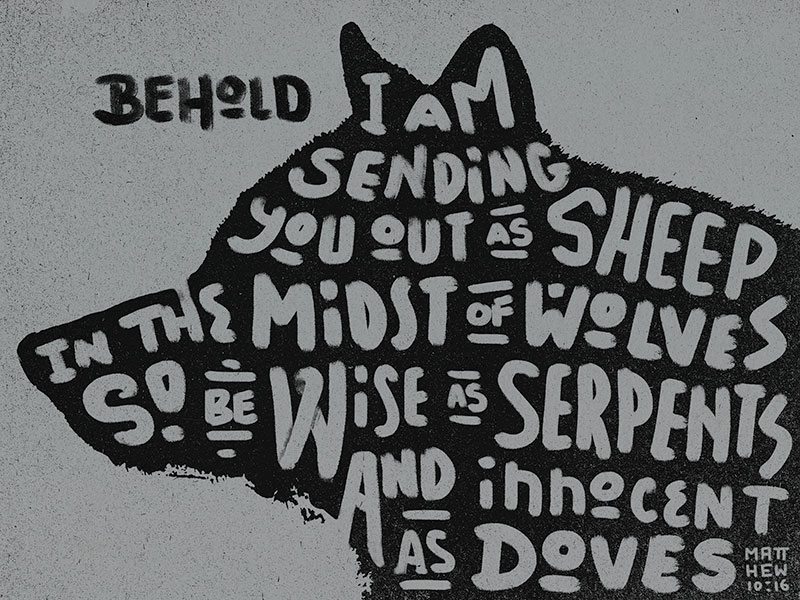 BEHOLD I AM
SENDiNG
YOU OUT AS SHEEP
IN THE MiDST OF WOLVES
SO BE WiSE AS SERPENTS
AND innoCENT
AS DOVES
MATT
HEW
10:16